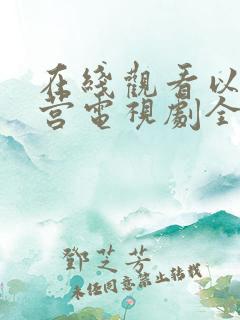 在綫觀看以
营電視劇全
鄧芝芳
未经同意禁止转载